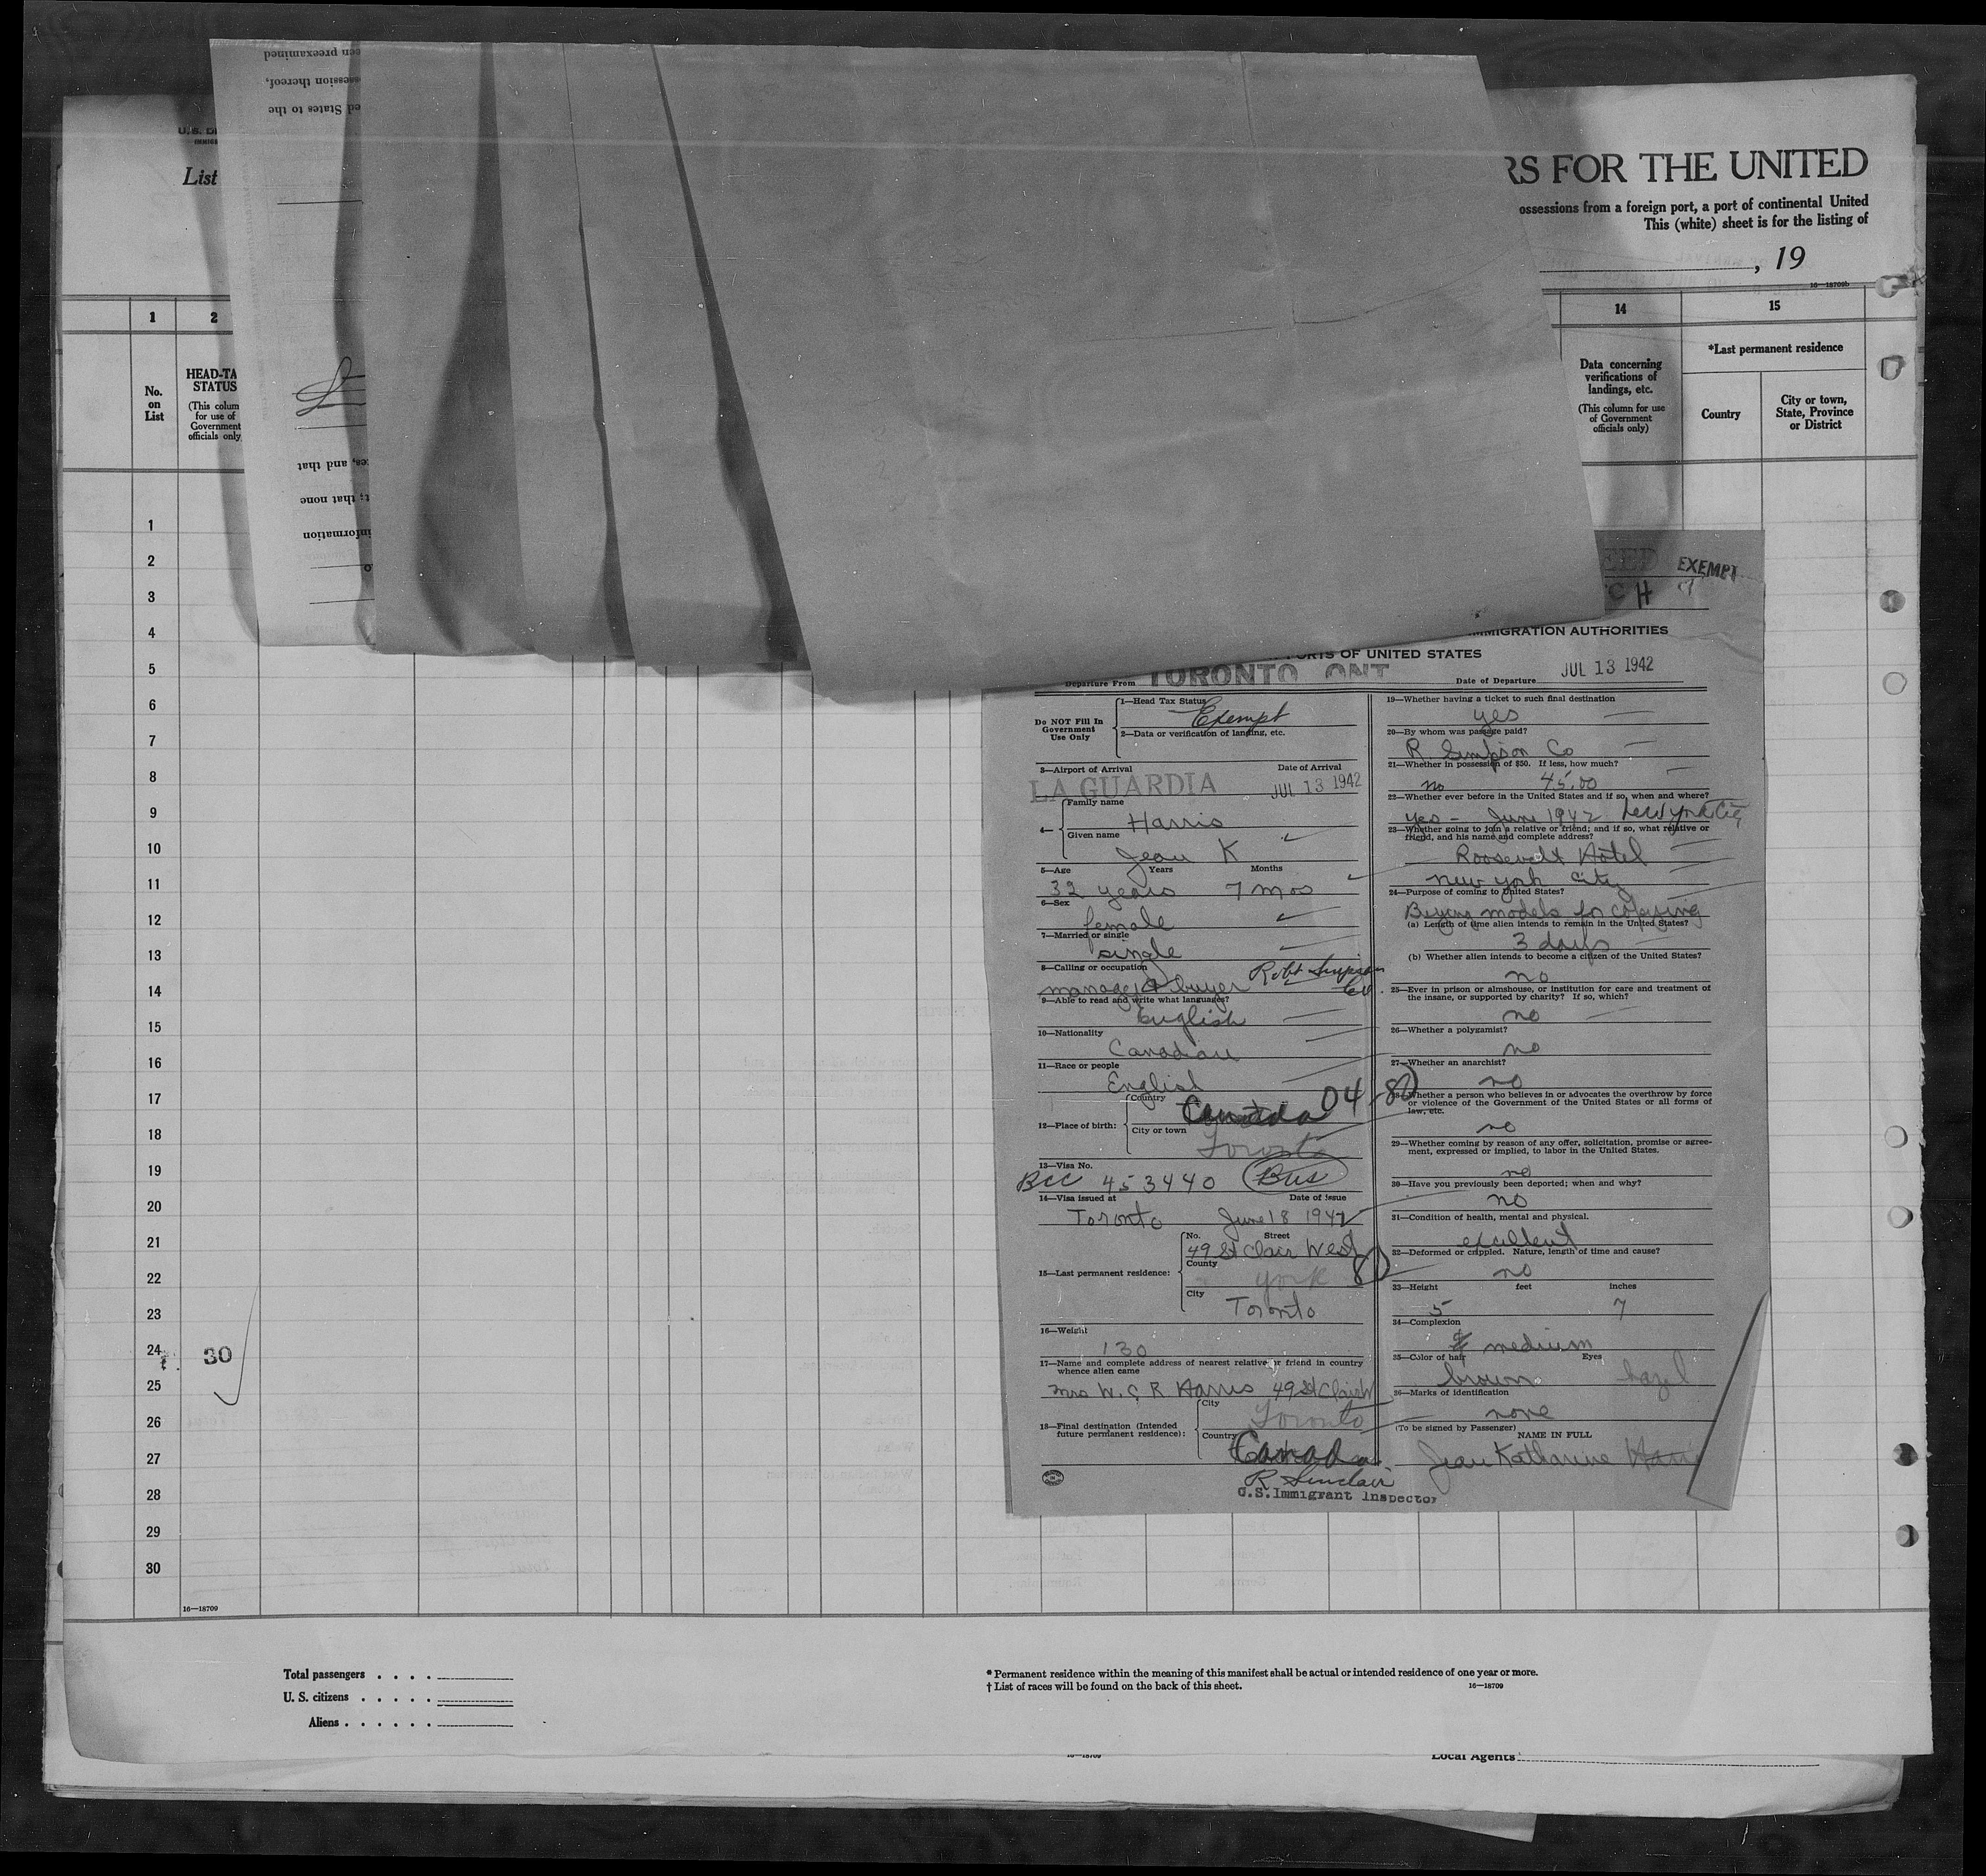 U.S.
List
RS FOR THE UNITED
ossessions from a foreign port, a port of continental United
This (white) sheet is for the listing of
, 19
16—18709b
een preexamined
session thereof,
ed States to the
es, and that
t; that none
information
1
2
14
15
No.
on
List
HEAD-TA
STATUS
(This colum
for use of
Government
officials only
Data concerning
verifications of
landings, etc.
(This column for use
of Government
officials only)
*Last permanent residence
Country
City or town,
State, Province
or District
1
2
3
4
5
6
7
8
9
10
11
12
13
14
15
16
17
18
19
20
21
22
23
24
30
25
26
27
28
29
30
16—18709
EXEMPT
H 7
MMIGRATION AUTHORITIES
PORTS OF UNITED STATES
Departure From TORONTO ONT
Date of Departure JUL 13 1942
Do NOT Fill In
Government
Use Only
1—Head Tax Status
Exempt
2—Data or verification of landing, etc.
3—Airport of Arrival Date of Arrival
LA GUARDIA JUL 13 1942
4—
Family name
Harris
Given name
Jean K
5—Age Years Months
32 years 7 mos
6—Sex
female
7—Married or single
single
8—Calling or occupation Robt Simpson
manager & buyer Co.
9—Able to read and write what languages?
English
10—Nationality
Canadian
11—Race or people
English
12—Place of birth:
Country
Canada 04-80
City or town
Toronto
13—Visa No.
BCC 453440 Bus
14—Visa issued at Date of issue
Toronto June 18 1942
15—Last permanent residence:
No. Street
49 St Clair West
County
York 80
City
Toronto
16—Weight
130
17—Name and complete address of nearest relative or friend in country
whence alien came
Mrs W. C R Harris 49 St Clair W
18—Final destination (Intended
future permanent residence):
City
Toronto
Country
Canada
R Sinclair
U.S. Immigrant Inspector
19—Whether having a ticket to such final destination
yes
20—By whom was passage paid?
R Simpson Co
21—Whether in possession of $50. If less, how much?
no 45.00
22—Whether ever before in the United States and if so, when and where?
yes - June 1942 New York City
23—Whether going to join a relative or friend; and if so, what relative or
friend, and his name and complete address?
Roosevelt Hotel
New York City
24—Purpose of coming to United States?
Buying models for copying
(a) Length of time alien intends to remain in the United States?
3 days
(b) Whether alien intends to become a citizen of the United States?
no
25—Ever in prison or almshouse, or institution for care and treatment of
the insane, or supported by charity? If so, which?
no
26—Whether a polygamist?
no
27—Whether an anarchist?
no
28—Whether a person who believes in or advocates the overthrow by force
or violence of the Government of the United States or all forms of
law, etc.
no
29—Whether coming by reason of any offer, solicitation, promise or agree-
ment, expressed or implied, to labor in the United States.
no
30—Have you previously been deported; when and why?
no
31—Condition of health, mental and physical.
excellent
32—Deformed or crippled. Nature, length of time and cause?
no
33—Height feet inches
5 7
34—Complexion
medium
35—Color of hair Eyes
brown hazel
36—Marks of identification
none
(To be signed by Passenger) NAME IN FULL
Jean Katharine Harris
Total passengers . . . .
U. S. citizens . . . . .
Aliens . . . . . .
* Permanent residence within the meaning of this manifest shall be actual or intended residence of one year or more.
† List of races will be found on the back of this sheet.
16—18709
16—18709
Local Agents